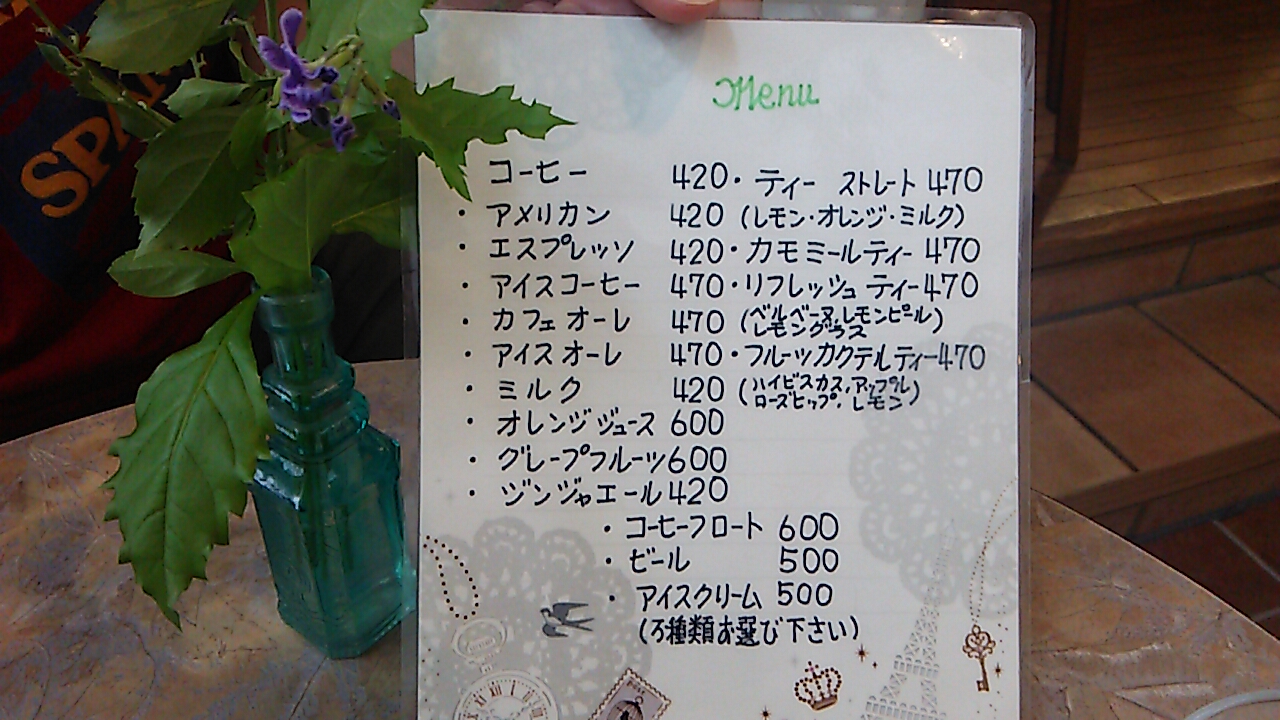 SPA
Menu
コーヒー 420
・アメリカン 420
・エスプレッソ 420
・アイスコーヒー 470
・カフェオーレ 470
・アイスオーレ 470
・ミルク 420
・オレンジジュース 600
・グレープフルーツ 600
・ジンジャエール 420
・ティー ストレート 470
(レモン・オレンジ・ミルク)
・カモミールティー 470
・リフレッシュティー 470
(ベルベーヌ、レモンピール
レモングラス)
・フルーツカクテルティー 470
(ハイビスカス、アップル
ローズヒップ、レモン)
・コーヒーフロート 600
・ビール 500
・アイスクリーム 500
(3種類お選び下さい)